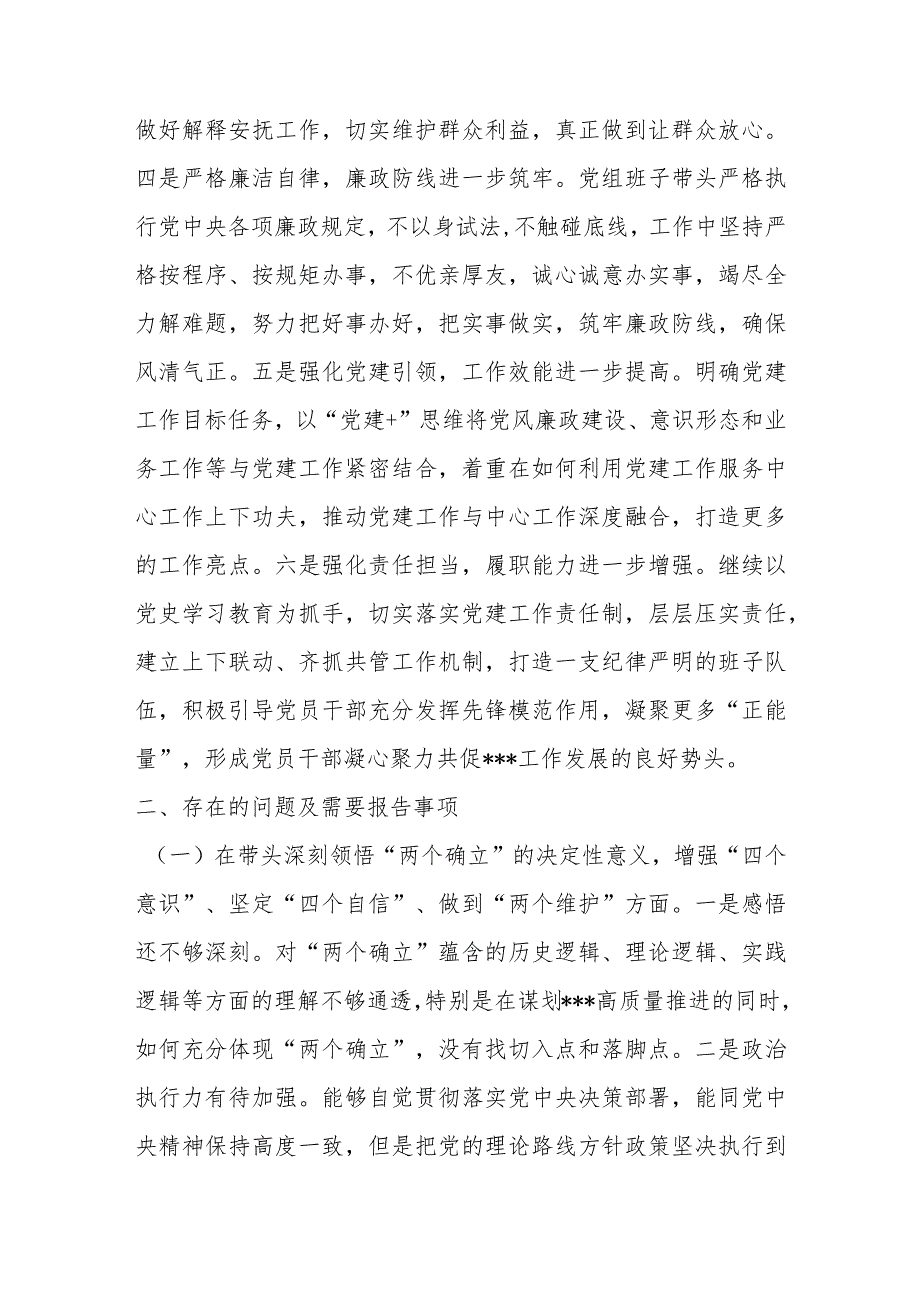 做好解释安抚工作，切实维护群众利益，真正做到让群众放心。
四是严格廉洁自律，廉政防线进一步筑牢。党组班子带头严格执
行党中央各项廉政规定，不以身试法,不触碰底线，工作中坚持严
格按程序、按规矩办事，不优亲厚友，诚心诚意办实事，竭尽全
力解难题，努力把好事办好，把实事做实，筑牢廉政防线，确保
风清气正。五是强化党建引领，工作效能进一步提高。明确党建
工作目标任务，以“党建+”思维将党风廉政建设、意识形态和业
务工作等与党建工作紧密结合，着重在如何利用党建工作服务中
心工作上下功夫，推动党建工作与中心工作深度融合，打造更多
的工作亮点。六是强化责任担当，履职能力进一步增强。继续以
党史学习教育为抓手，切实落实党建工作责任制，层层压实责任，
建立上下联动、齐抓共管工作机制，打造一支纪律严明的班子队
伍，积极引导党员干部充分发挥先锋模范作用，凝聚更多“正能
量”，形成党员干部凝心聚力共促***工作发展的良好势头。
二、存在的问题及需要报告事项
（一）在带头深刻领悟“两个确立”的决定性意义，增强“四个
意识”、坚定“四个自信”、做到“两个维护”方面。一是感悟
还不够深刻。对“两个确立”蕴含的历史逻辑、理论逻辑、实践
逻辑等方面的理解不够通透,特别是在谋划***高质量推进的同时，
如何充分体现“两个确立”，没有找切入点和落脚点。二是政治
执行力有待加强。能够自觉贯彻落实党中央决策部署，能同党中
央精神保持高度一致，但是把党的理论路线方针政策坚决执行到